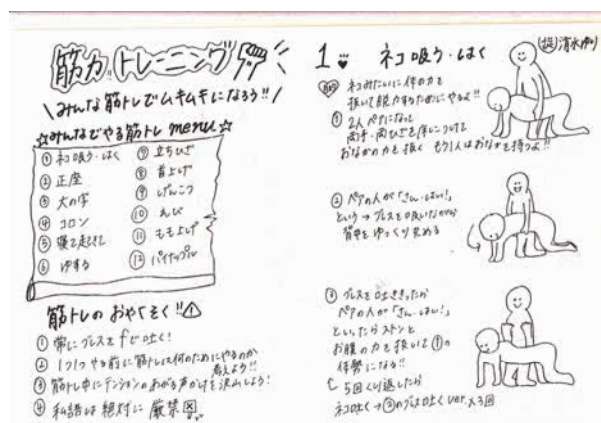 筋力トレーニング
\みんな筋トレでムキムキになろう!!/
☆みんなでやる筋トレ menu☆
① ネコ吸う・はく
② 正座
③ 大の字
④ コロン
⑤ 寝て起きて
⑥ ゆする
⑦ 立ちひざ
⑧ 首上げ
⑨ げんこつ
⑩ えび
⑪ ももよげ
⑫ パイナップル
筋トレの おやくそく!!
① 常にブレスをfで吐く!
② 1つ1つやる前に筋トレは何のためにやるのか
考えよう!!
③ 筋トレ中にテンションのあがる声かけを沢山しよう!
④ 私語は絶対に 厳禁
1 ネコ吸う・はく
清水
ネコみたいに体の力を
抜いて脱力するためにやるよ!!
① 2人ペアになって
両手・両ひざを床につけて
おなかの力を抜く もう1人はおなかを持つよ!!
② ペアの人が「さん、はい!」
という→ブレスを吸いながら
背中をゆっくり丸める
③ ブレスを吐ききったら
ペアの人が「さん、はい!」
といったらストンと
お腹の力を抜いて①の
体勢になる!!
5回くり返したら
ネコ吐く→②のブレス吐く ver.×3回